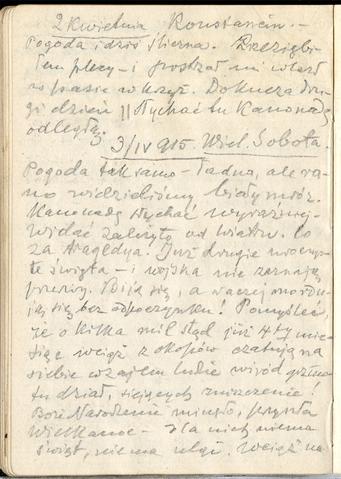 2 Kwietnia Konstancin. -
Pogoda i dziś śliczna. Przezięb-
iłem plecy - i postrzał mi wlazł
w pasie w krzyż. Dokucza dru-
gi dzień || Słychać tu kanonadę
odległą.
3/IV 915. Wiel. Sobota.
Pogoda tak samo - ładna, ale ra-
no widzieliśmy biały mróz.
Kanonadę słychać wyraźniej -
widać zależy od wiatru. Co
za tragedya. Już drugie uroczys-
te święta - i wojska nie zaznają
przerwy. Biją się, a raczej mordu-
ją się bez odpoczynku! Pomyśleć,
że o kilka mil stąd już 4ty mie-
siąc wciąż z okopów czatują na
siebie wzajem ludzie wśród grzmo-
tu dział, siejących zniszczenie!
Boże Narodzenie minęło, przyszła
Wielkanoc - dla nich niema
świąt, niema ulgi. Wciąż na